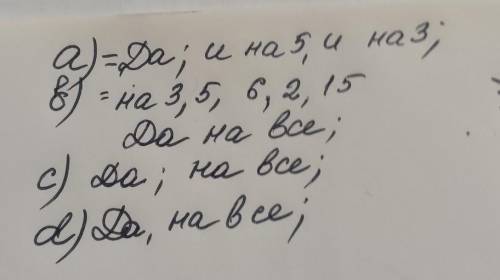 a) = Да; и на 5, и на 3;
в) = на 3, 5, 6, 2, 15
Да на все;
c) Да; на все;
d) Да, на все;